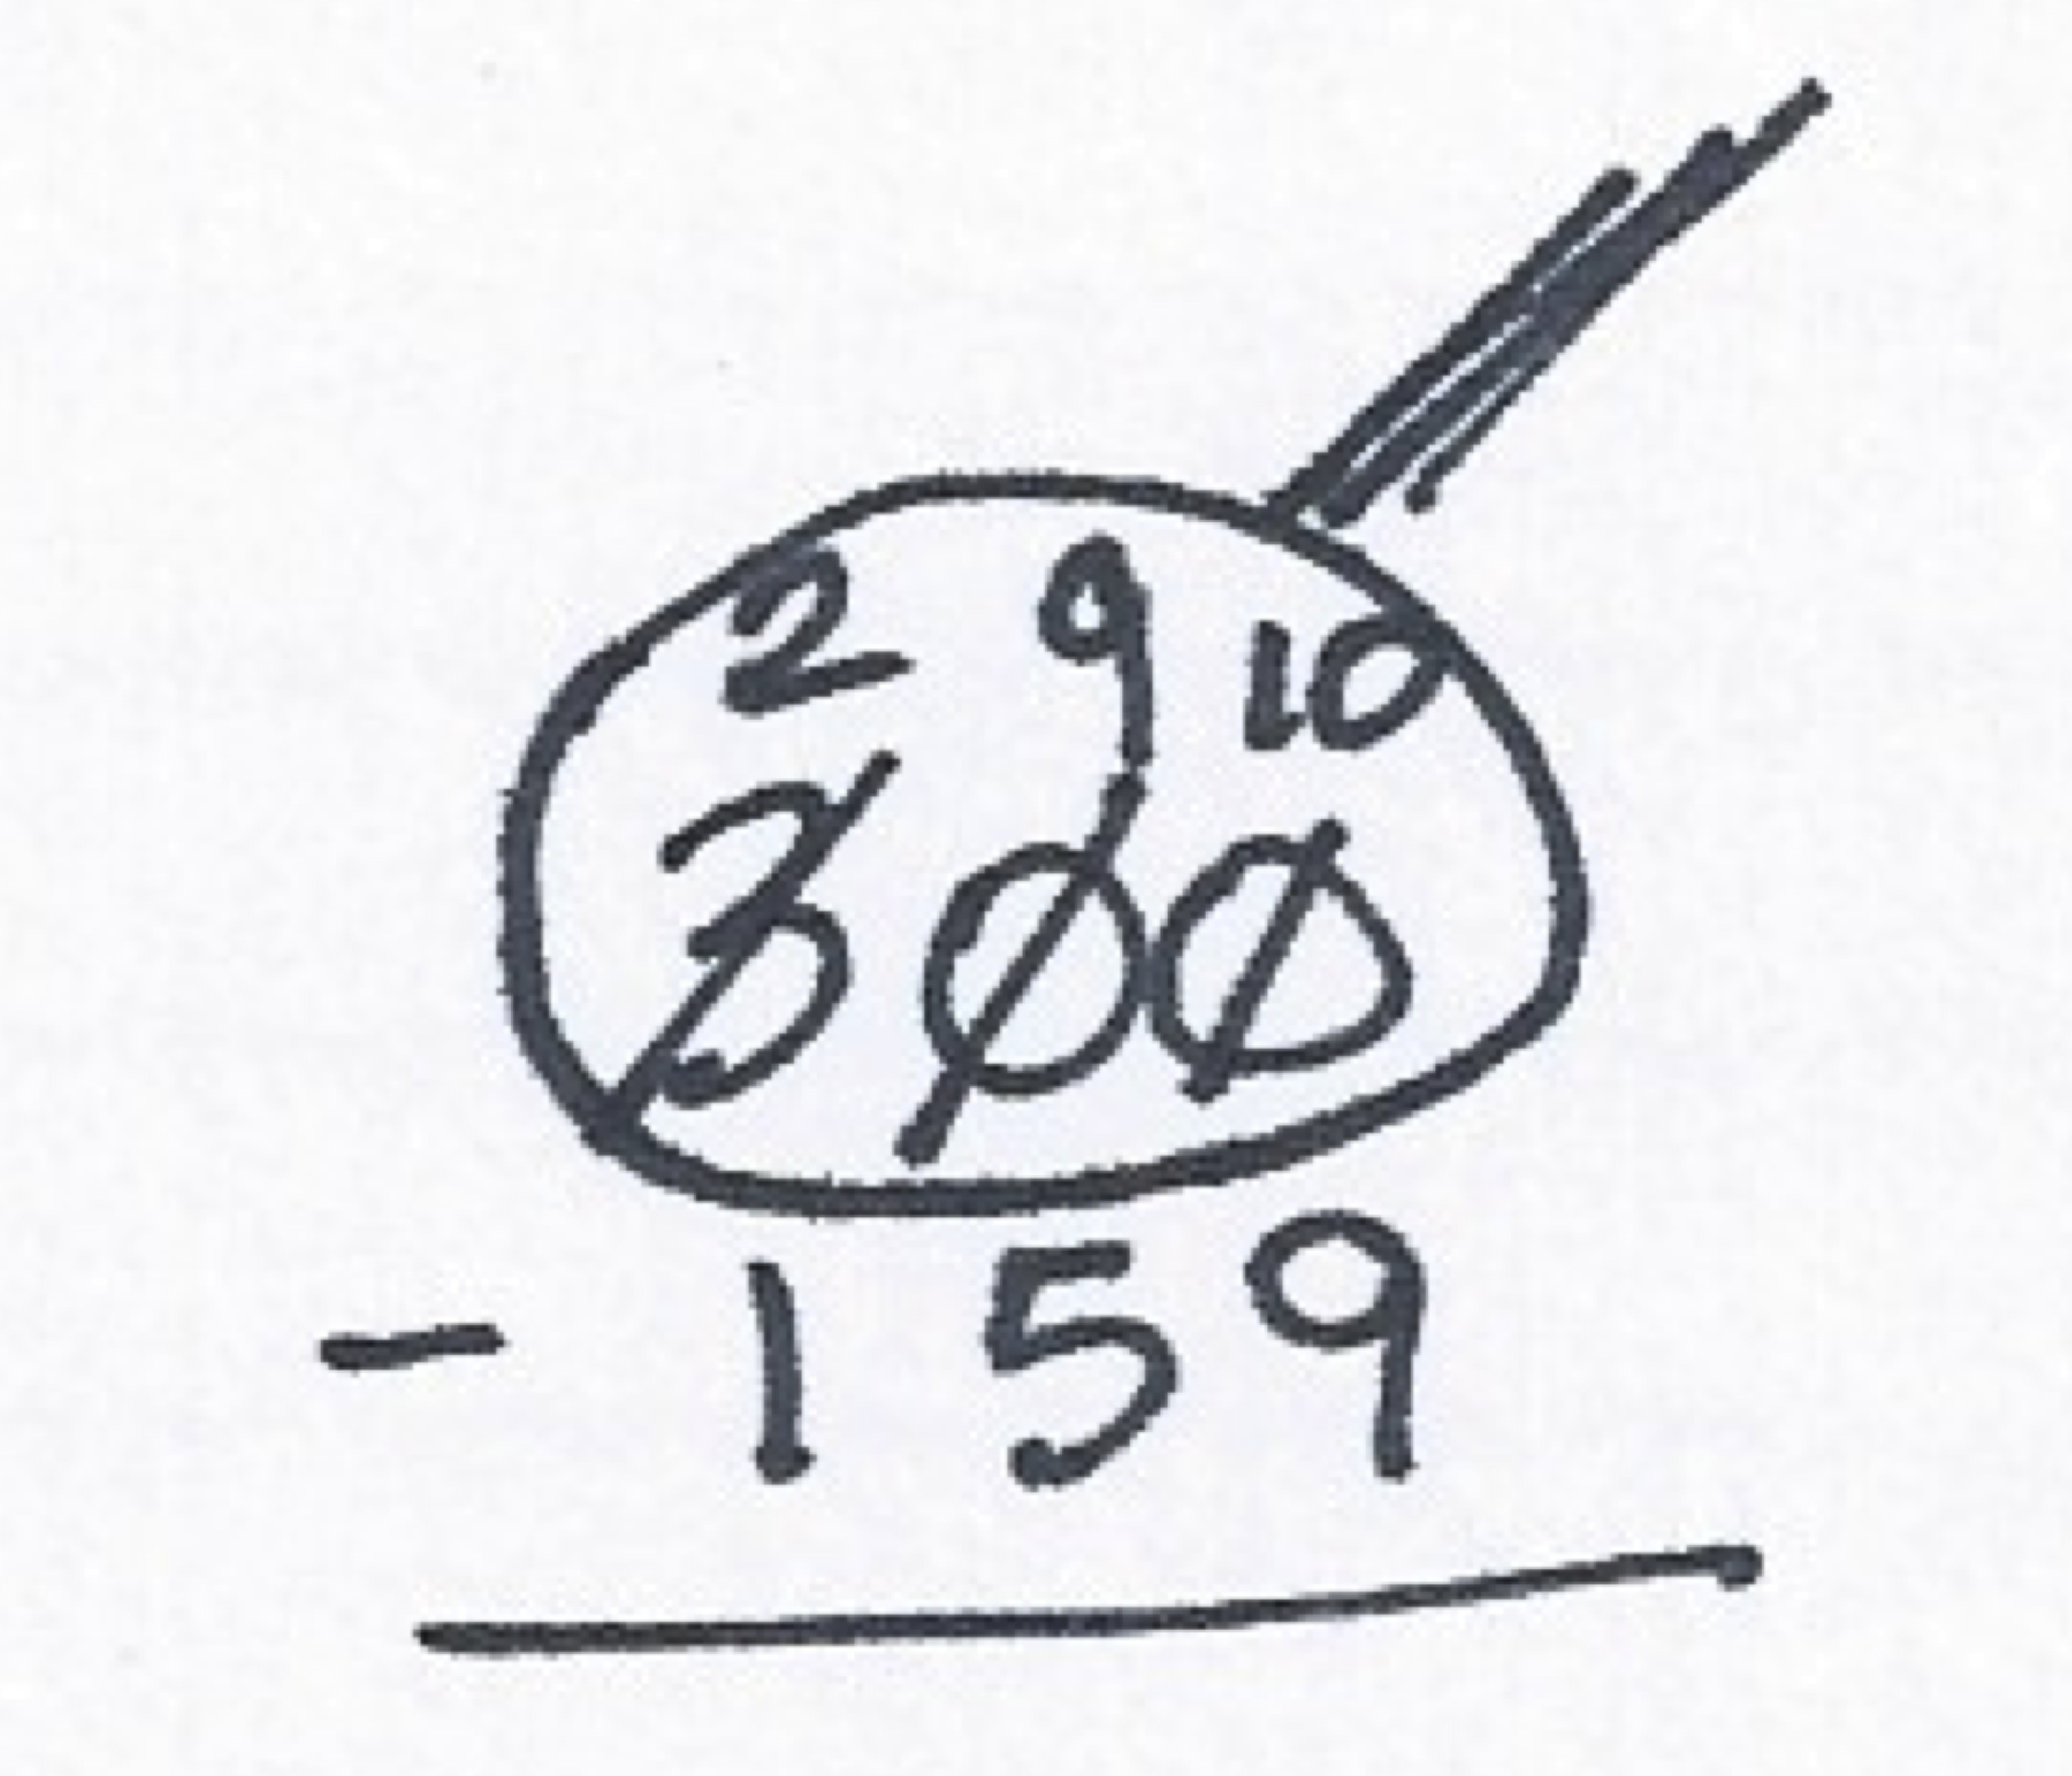 2 9 10
300
- 159